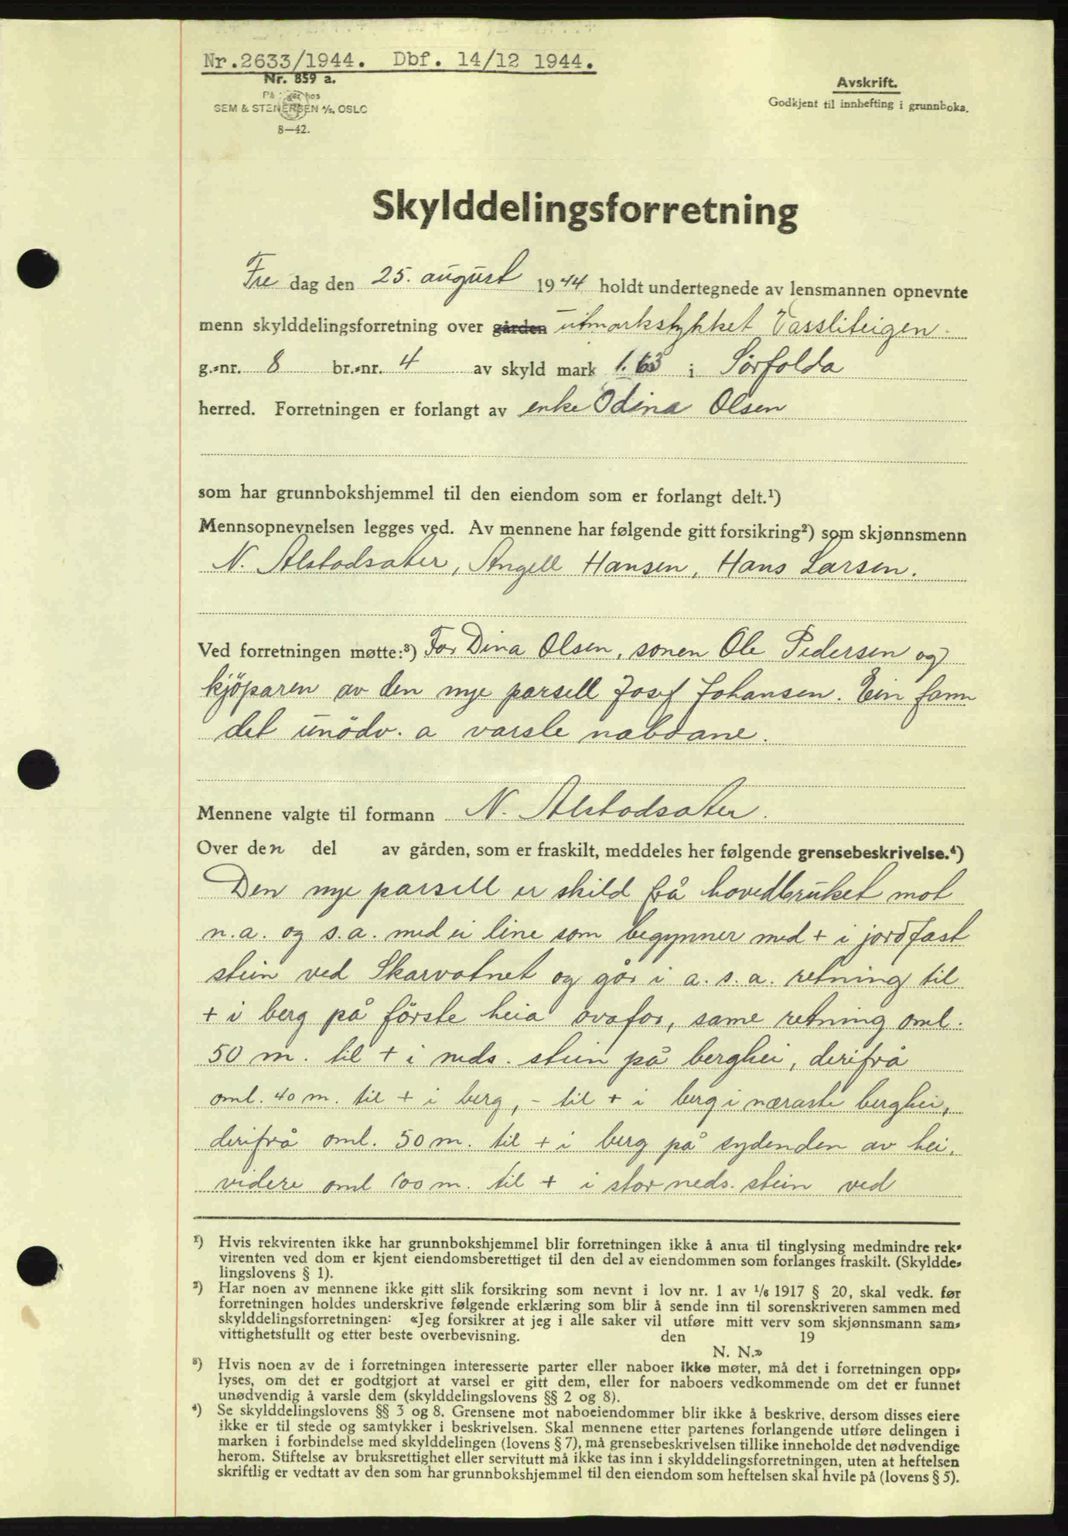 Nr.2633/1944. Dbf. 14/12 1944.
Nr. 859 a.
SEM & STENERSEN A/S, OSLO
8—42.
Avskrift.
Godkjent til innhefting i grunnboka.
Skylddelingsforretning
Fre dag den 25. august 1944 holdt undertegnede av lensmannen opnevnte
menn skylddelingsforretning over gården utmarkstykket Vassliteigen.
g.-nr. 8 br.-nr. 4 av skyld mark 1.63 i Sörfolda
herred. Forretningen er forlangt av enke Odina Olsen
som har grunnbokshjemmel til den eiendom som er forlangt delt.¹)
Mennsopnevnelsen legges ved. Av mennene har følgende gitt forsikring²) som skjønnsmenn
N. Alstadsæter, Angell Hansen, Hans Larsen.
Ved forretningen møtte:³) For Dina Olsen, sonen Ole Pedersen og
kjöparen av den nye parsell Josef Johansen. Ein fann
det unödv. a varsle naboane.
Mennene valgte til formann N. Alstadsæter.
Over den del av gården, som er fraskilt, meddeles her følgende grensebeskrivelse.⁴)
Den nye parsell er skild frå hovedbruket mot
n.a. og s.a. med ei line som begynner med + i jordfast
stein ved Skarvatnet og går i a.s.a. retning til
+ i berg på förste heia ovafor, same retning oml.
50 m. til + i neds. stein på berghei, derifrå
oml. 40 m. til + i berg, - til + i berg i næraste berghei,
derifrå oml. 50 m. til + i berg på sydenden av hei,
videre oml 100 m. til + i stor neds. stein ved
¹) Hvis rekvirenten ikke har grunnbokshjemmel blir forretningen ikke å anta til tinglysing medmindre rek-
virenten ved dom er kjent eiendomsberettiget til den del av eiendommen som forlanges fraskilt. (Skyldde-
lingslovens § 1).
²) Har noen av mennene ikke gitt slik forsikring som nevnt i lov nr. 1 av 1/6 1917 § 20, skal vedk. før
forretningen holdes underskrive følgende erklæring som blir å sende inn til sorenskriveren sammen med
skylddelingsforretningen: «Jeg forsikrer at jeg i alle saker vil utføre mitt verv som skjønnsmann sam-
vittighetsfullt og etter beste overbevisning. den 19
N. N.»
³) Hvis noen av de i forretningen interesserte parter eller naboer ikke møter, må det i forretningen opp-
lyses, om det er godtgjort at varsel er gitt dem, eller for naboers vedkommende om det er funnet
unødvendig å varsle dem (skylddelingslovens §§ 2 og 8).
⁴) Se skylddelingslovens §§ 3 og 8. Grensene mot naboeiendommer blir ikke å beskrive, dersom disses eiere
ikke er til stede og samtykker i beskrivelsen. Skal mennene etter partenes forlangende utføre delingen i
marken i forbindelse med skylddelingen (lovens § 7), må grensebeskrivelsen tillike inneholde det nødvendige
herom. Stiftelse av bruksrettighet eller servitutt må ikke tas inn i skylddelingsforretningen, uten at heftelsen
skriftlig er vedtatt av den som har grunnbokshjemmel til den eiendom som heftelsen skal hvile på (lovens § 5).